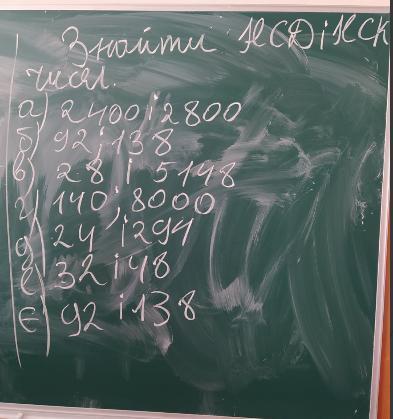 Знайти НСД і НСК
чисел.
а) 2400 і 2800
б) 92 і 138
в) 28 і 5148
г) 140 і 8000
д) 24 і 294
е) 32 і 48
є) 92 і 138